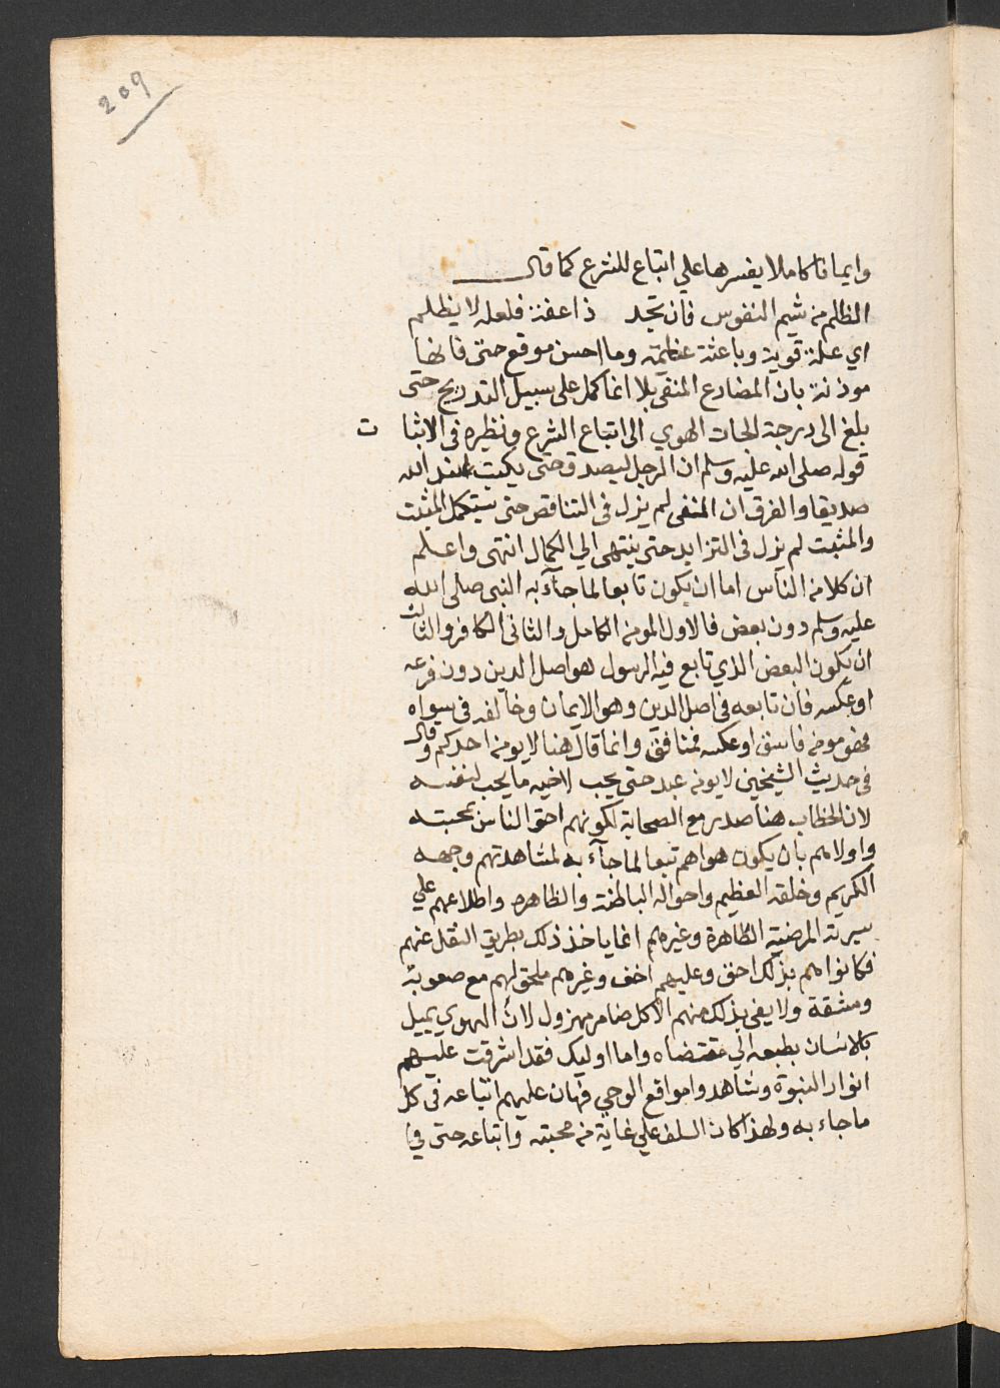 209
وايمانا كاملا يقسرها علي اتباع للشرع كما قال
الظلم من شيم النفوس فان تجد ذا عفة فلعله لا يظلم
اي علة قوية وباعثة عظيمة وما احسن موقع حتى فانها
موذنة بان المضارع المنفى بلا انما كمل على سبيل التدريج حتى
بلغ الى درجة الجات الهوي الى اتباع الشرع ونظيره فى الاثبات
قوله صلى الله عليه وسلم ان الرجل ليصدق حتى يكتب عند الله
صديقا والفرق ان المنفى لم يزل فى التناقص حتى يستكمل المثبت
والمثبت لم يزل فى التزايد حتى ينتهى الي الكمال انتهى واعلم
ان كلا من الناس اما ان يكون تابعا لما جآء به النبى صلى الله
عليه وسلم دون بعض فالاول المومن الكامل والثانى الكافر والثالث
ان يكون البعض الذي تابع فيه الرسول هو اصل الدين دون فرعه
او عكسه فان تابعه فى اصل الدين وهو الايمان وخالفه فى سواه
فهو مومن فاسق او عكسه فمنافق وانما قال هنا لا يومن احدكم وقال
فى حديث الشيخين لا يومن عبد حتى يحب لاخيه ما يحب لنفسه
لان الخطاب هنا صدر مع الصحابة لكونهم احق الناس بمحبته
واولاهم بان يكون هواهم تبعا لما جآء به لمشاهدتهم وجهه
الكريم وخلقه العظيم واحواله الباطنة والظاهره واطلاعهم علي
سيرته المرضية الظاهرة وغيرهم انما ياخذ ذلك بطريق النقل عنهم
فكانوا هم بذلك احق وعليهم اخف وغيرهم ملحق لهم مع صعوبة
ومشقة ولا يفى بذلك منهم الا كل ضامر مهزول لان الهوي يميل
بالانسان بطبعه الي مقتضاه واما اوليك فقد اشرقت عليهم
انوار النبوة وشاهدوا مواقع الوحي فهان عليهم اتباعه فى كل
ما جاء به ولهذا كان السلف علي غاية من محبته واتباعه حتى في